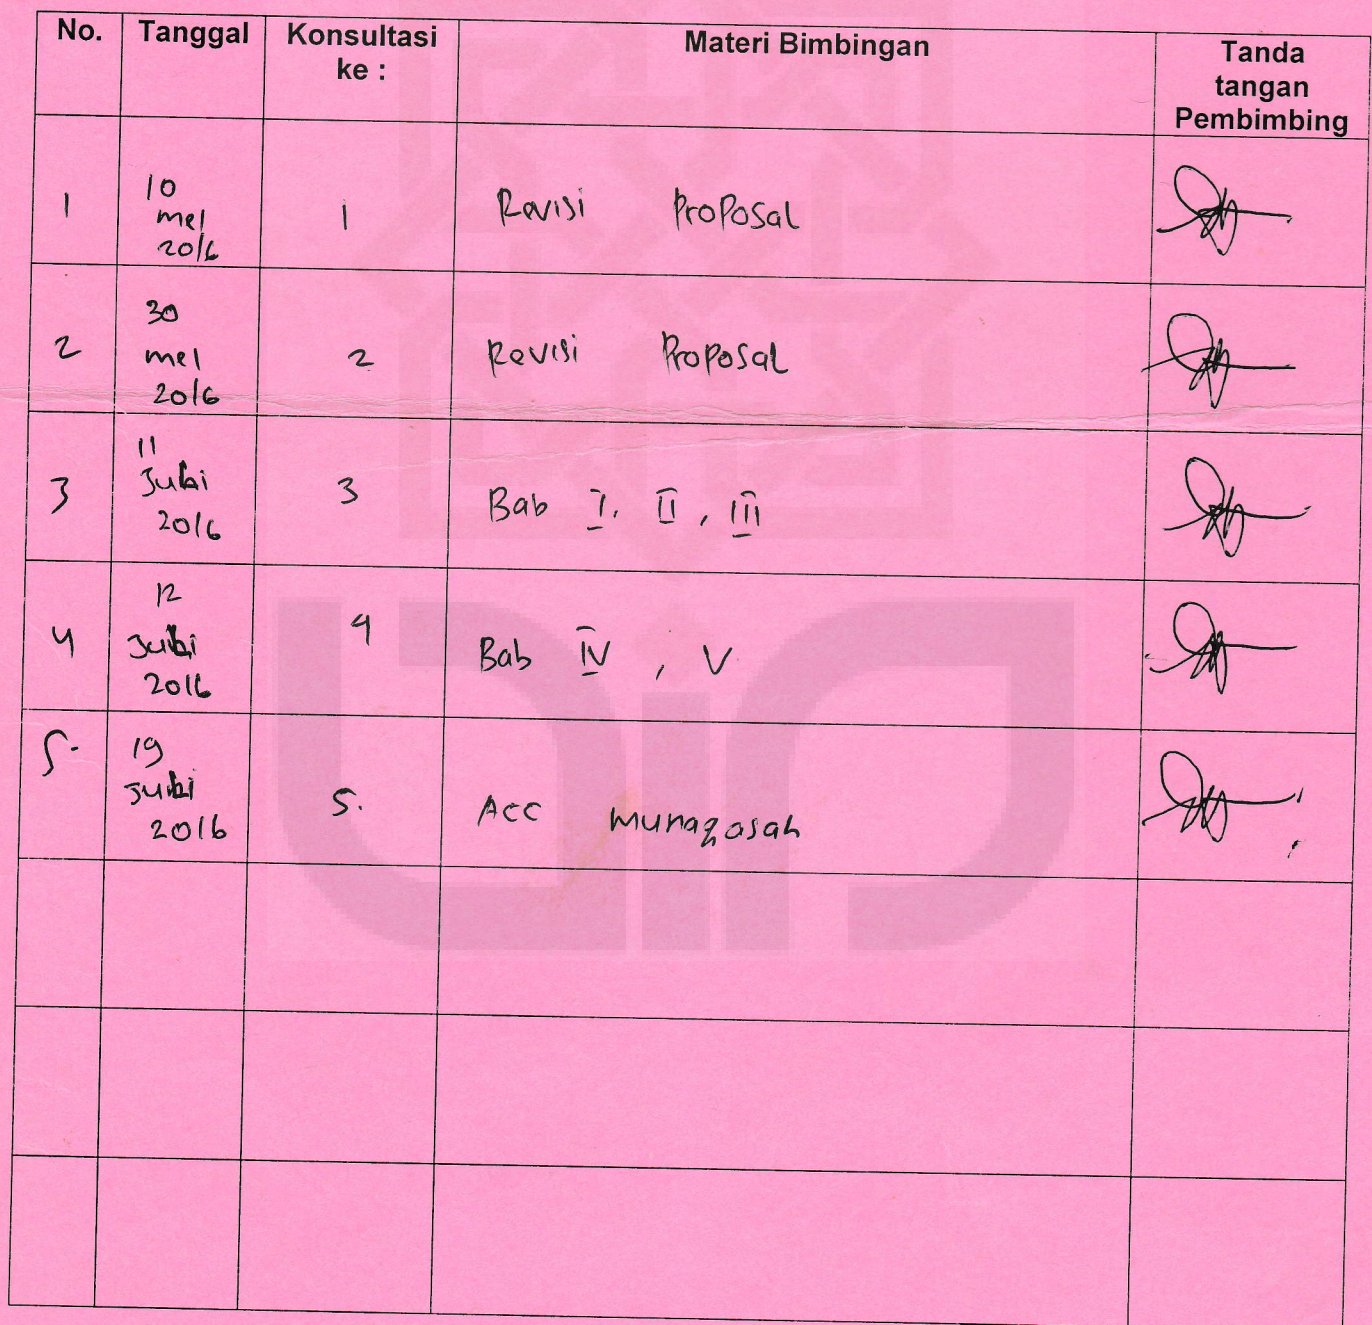 No. Tanggal Konsultasi ke : Materi Bimbingan Tanda tangan Pembimbing
1 10 mei 2016 1 Revisi Proposal
2 30 mei 2016 2 Revisi Proposal
3 11 Juli 2016 3 Bab I, II, III
4 12 Juli 2016 4 Bab IV, V
5. 19 Juli 2016 5. Acc munaqosah